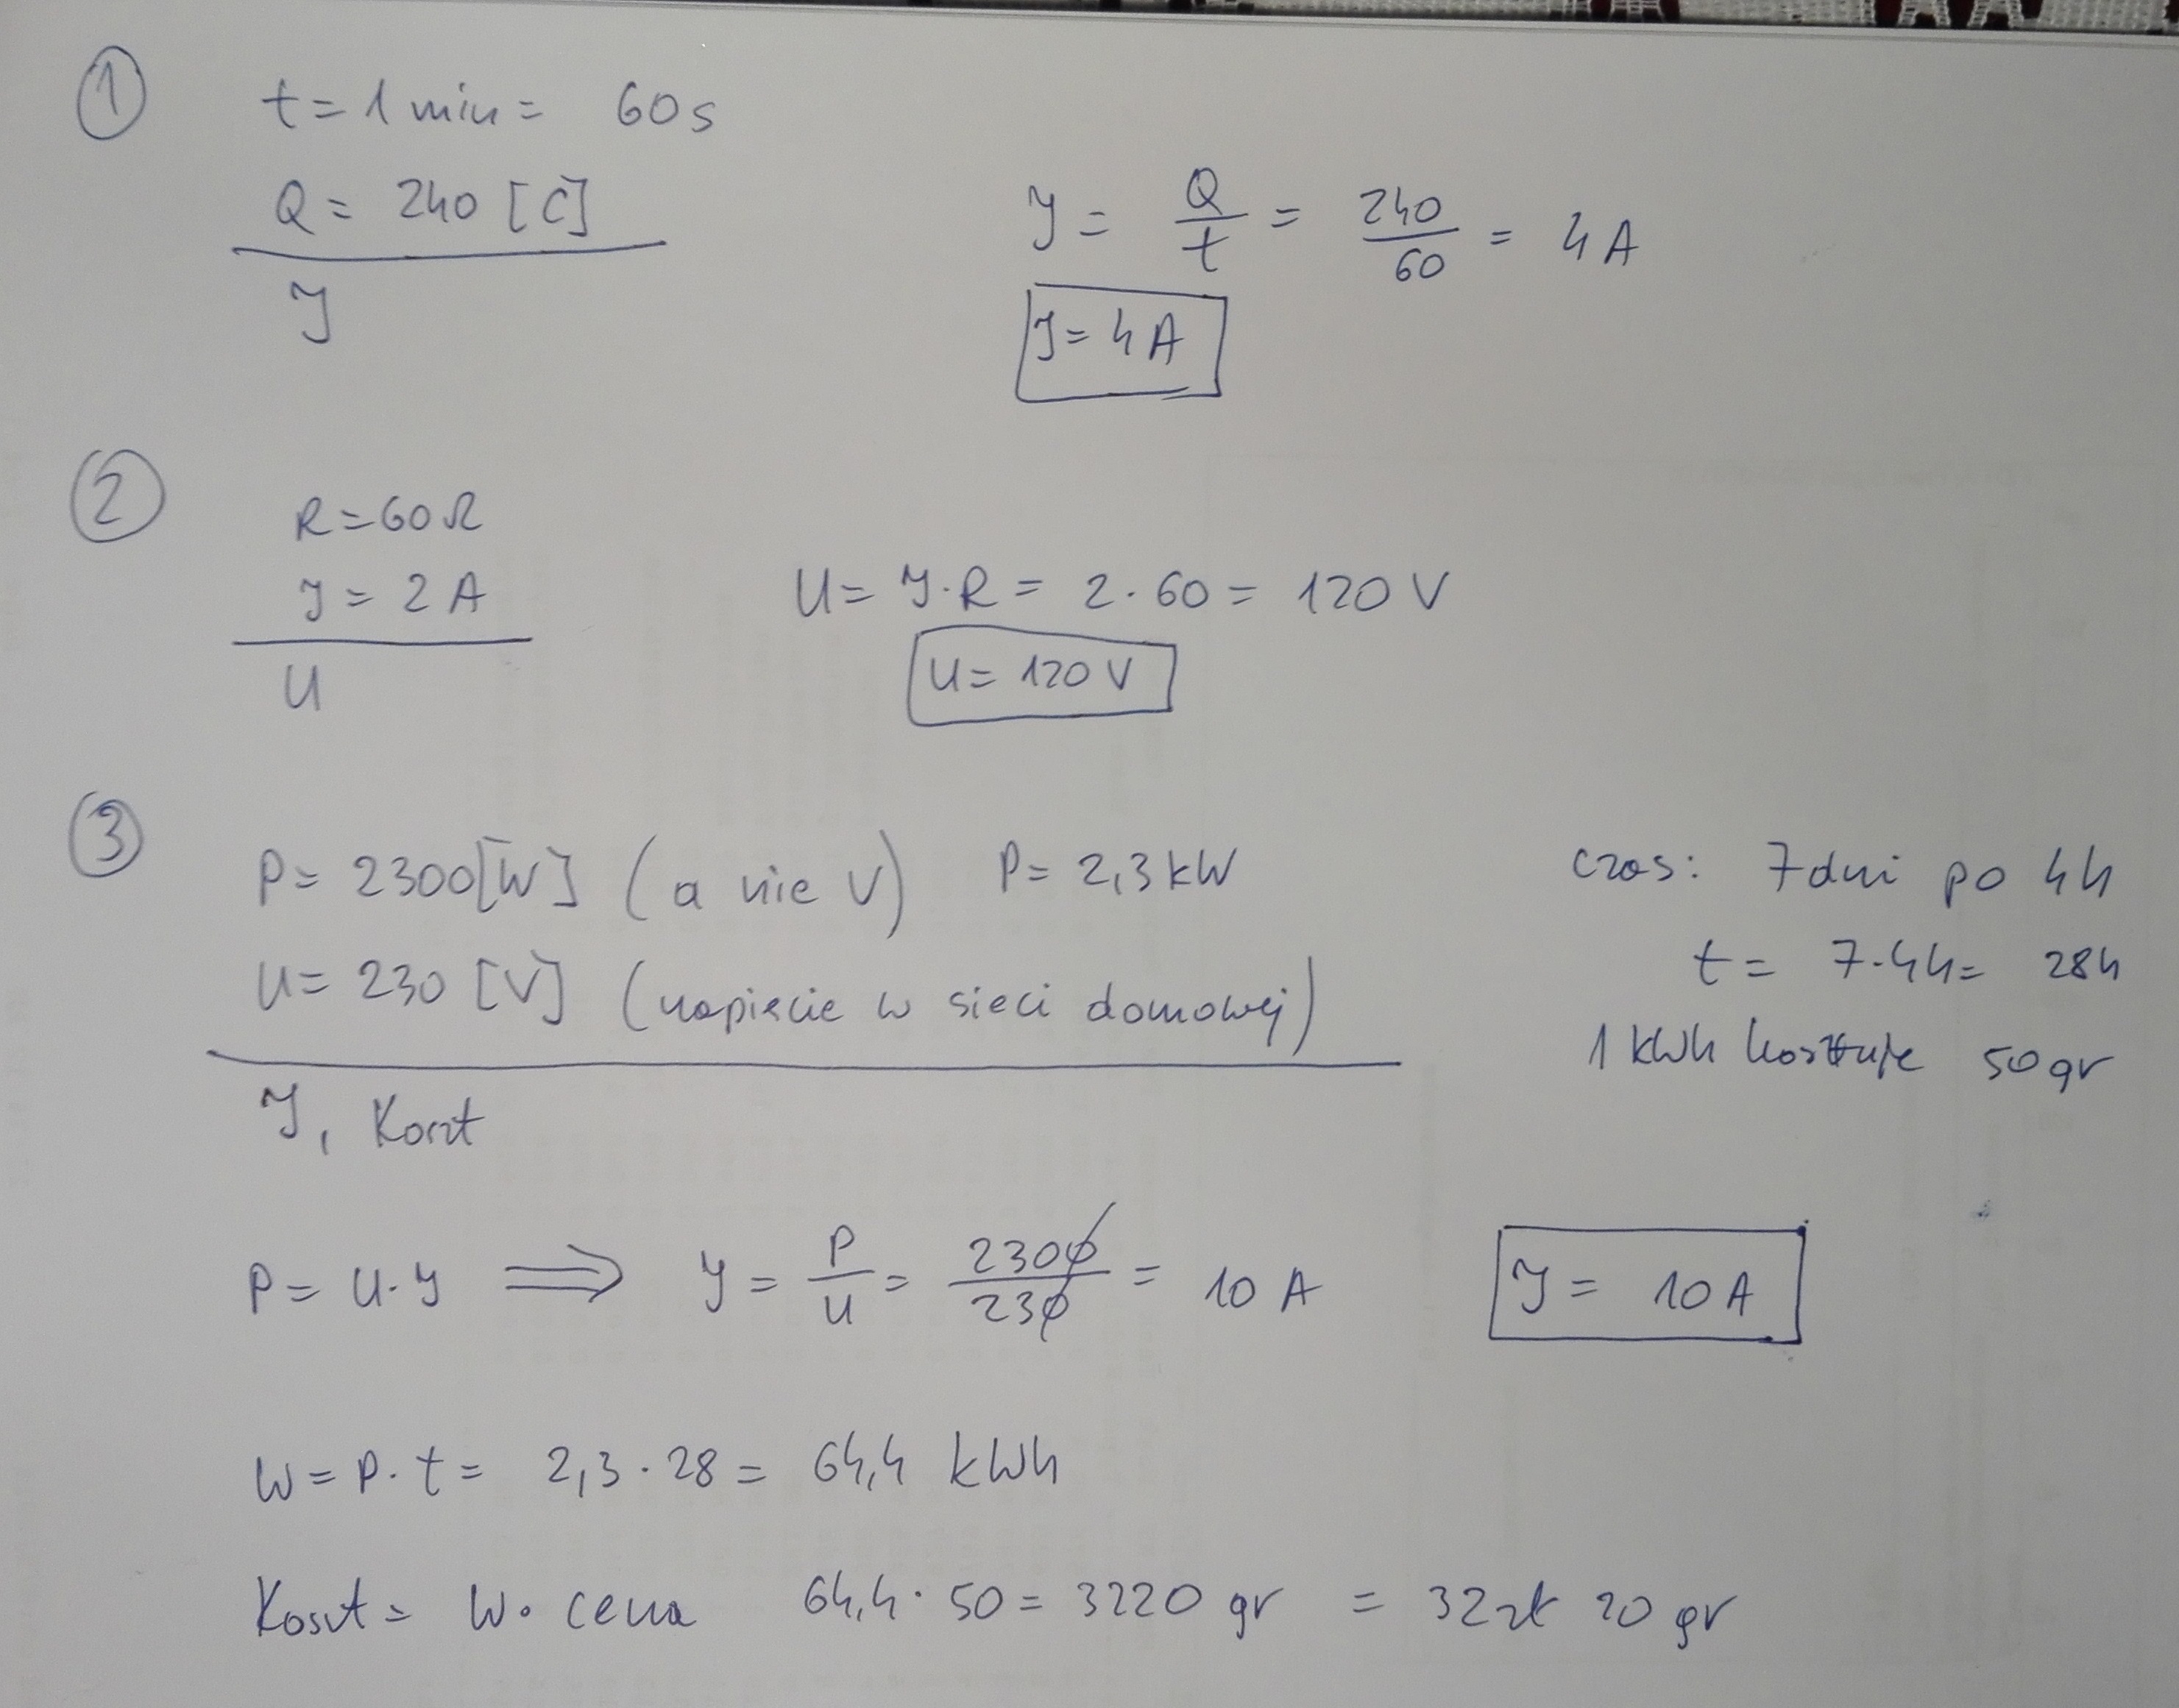 ①
t = 1 min = 60 s
Q = 240 [C]
J
J = Q/t = 240/60 = 4 A
J = 4 A
②
R = 60 Ω
J = 2 A
U
U = J · R = 2 · 60 = 120 V
U = 120 V
③
P = 2300 [W] (a nie V) P = 2,3 kW
U = 230 [V] (napięcie w sieci domowej)
J, Koszt
czas: 7 dni po 4h
t = 7 · 4h = 28h
1 kWh kosztuje 50 gr
P = U · J ⟹ J = P/U = 2300/230 = 10 A
J = 10 A
W = P · t = 2,3 · 28 = 64,4 kWh
Koszt = W · cena 64,4 · 50 = 3220 gr = 32 zł 20 gr